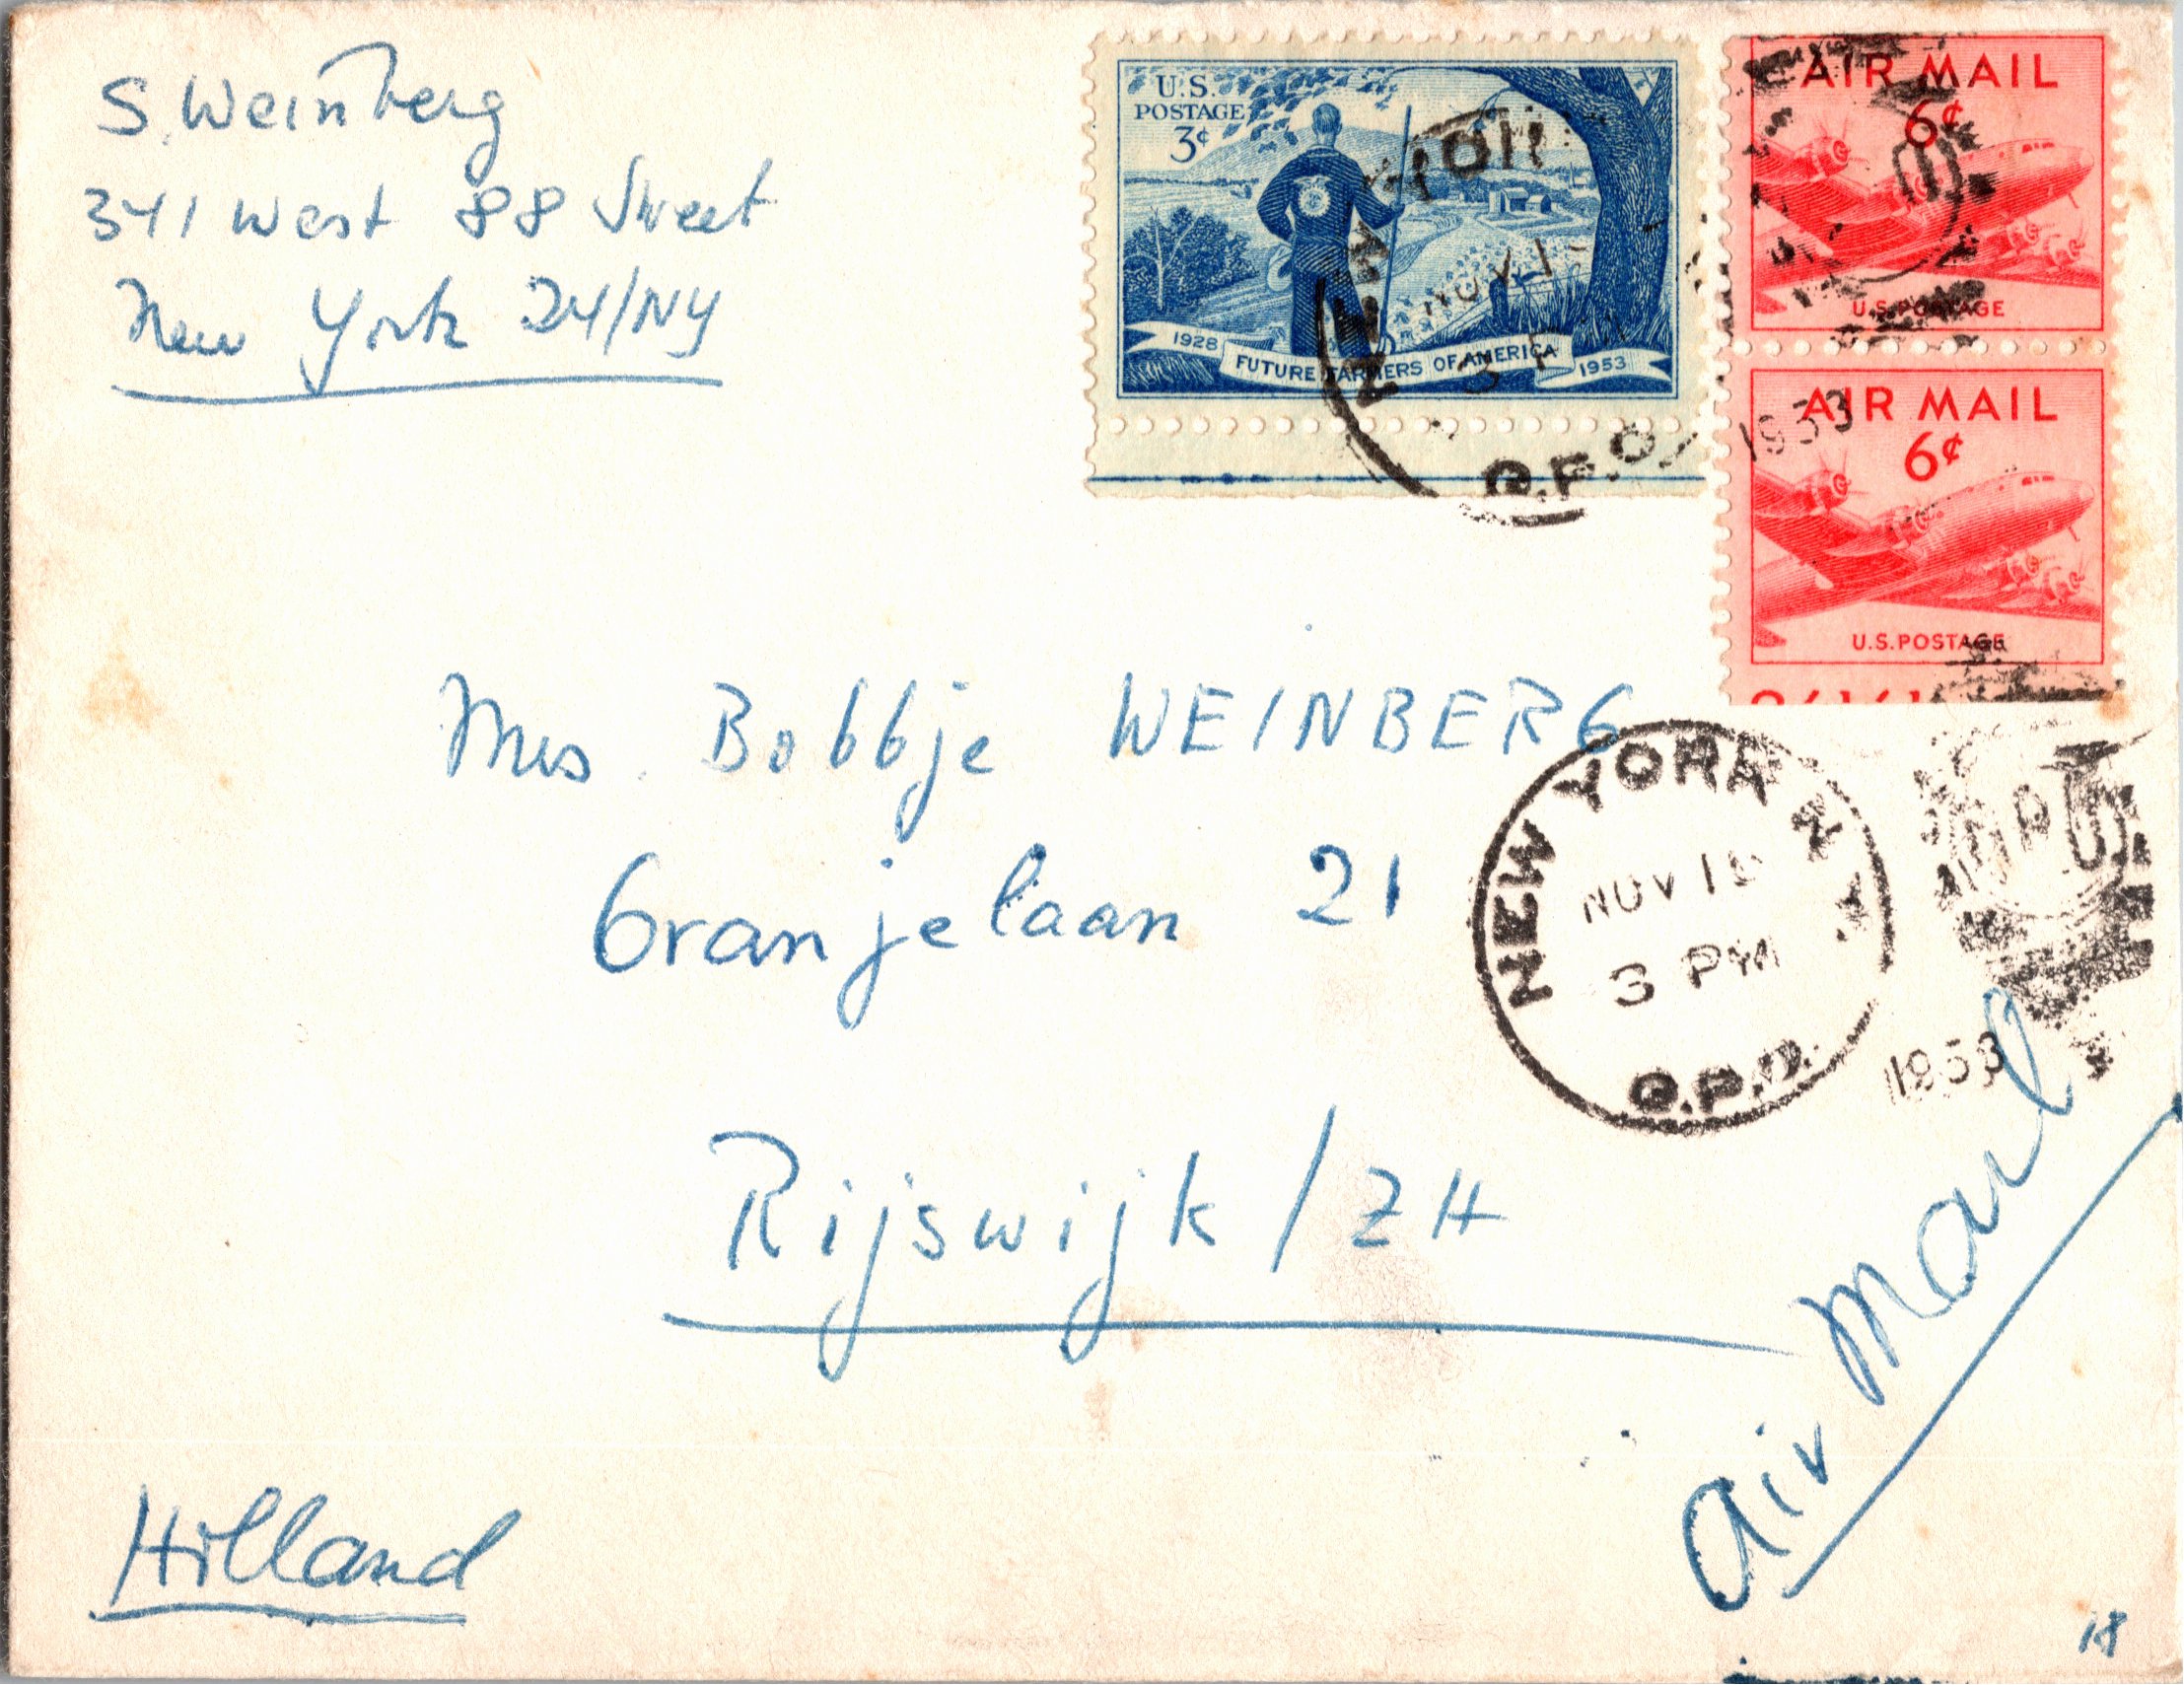 S. Weinberg
341 West 88 Street
New York 24/NY
U.S.
POSTAGE
3¢
1928 FUTURE FARMERS OF AMERICA 1953
AIR MAIL
6¢
U.S. POSTAGE
AIR MAIL
6¢
U.S. POSTAGE
NOV 1
3 P
G.P.O.
1953
Mrs. Bobbje WEINBERG
Oranjelaan 21
Rijswijk / ZH
NEW YORK N.Y.
NOV 1
3 PM
G.P.O.
1953
Air Mail
Holland
18